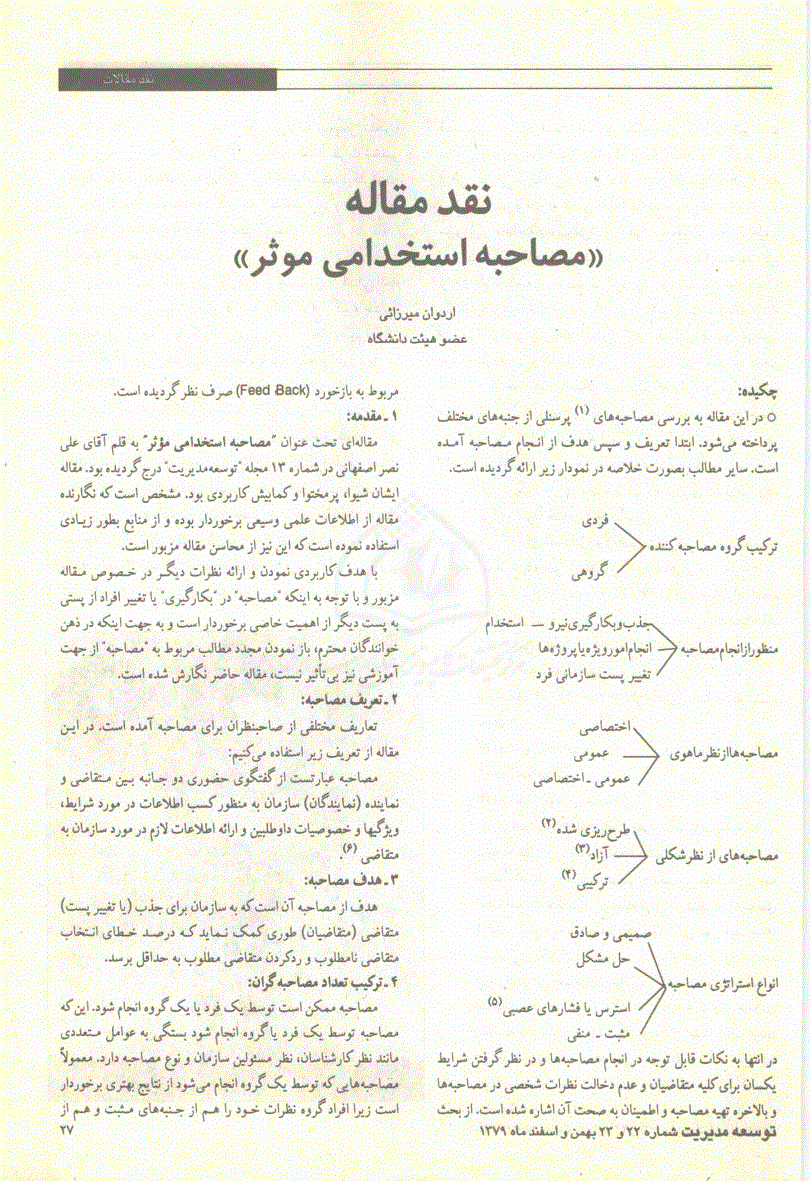 نقد مقالات
نقد مقاله
«مصاحبه استخدامی موثر»
اردوان میرزائی
عضو هیئت دانشگاه
چکیده:
○ در این مقاله به بررسی مصاحبه‌های (۱) پرسنلی از جنبه‌های مختلف
پرداخته می‌شود. ابتدا تعریف و سپس هدف از انجام مصاحبه آمده
است. سایر مطالب بصورت خلاصه در نمودار زیر ارائه گردیده است.
فردی
ترکیب گروه مصاحبه کننده
گروهی
جذب‌وبکارگیری‌نیرو — استخدام
منظورازانجام‌مصاحبه
انجام‌امورویژه‌یاپروژه‌ها
تغییر پست سازمانی فرد
اختصاصی
مصاحبه‌هاازنظرماهوی
عمومی
عمومی ـ اختصاصی
طرح‌ریزی شده (۲)
مصاحبه‌های از نظر شکلی
آزاد (۳)
ترکیبی (۴)
صمیمی و صادق
حل مشکل
انواع استراتژی مصاحبه
استرس یا فشارهای عصبی (۵)
مثبت ـ منفی
در انتها به نکات قابل توجه در انجام مصاحبه‌ها و در نظر گرفتن شرایط
یکسان برای کلیه متقاضیان و عدم دخالت نظرات شخصی در مصاحبه‌ها
و بالاخره تهیه مصاحبه و اطمینان به صحت آن اشاره شده است. از بحث
مربوط به بازخورد (Feed Back) صرف نظر گردیده است.
۱ ـ مقدمه:
مقاله‌ای تحت عنوان "مصاحبه استخدامی مؤثر" به قلم آقای علی
نصر اصفهانی در شماره ۱۳ مجله "توسعه‌مدیریت" درج گردیده بود. مقاله
ایشان شیوا، پر محتوا و کمابیش کاربردی بود. مشخص است که نگارنده
مقاله از اطلاعات علمی وسیعی برخوردار بوده و از منابع بطور زیادی
استفاده نموده است که این نیز از محاسن مقاله مزبور است.
با هدف کاربردی نمودن و ارائه نظرات دیگر در خصوص مقاله
مزبور و با توجه به اینکه "مصاحبه" در "بکارگیری" یا تغییر افراد از پستی
به پست دیگر از اهمیت خاصی برخوردار است و به جهت اینکه در ذهن
خوانندگان محترم، باز نمودن مجدد مطالب مربوط به "مصاحبه" از جهت
آموزشی نیز بی‌تأثیر نیست، مقاله حاضر نگارش شده است.
۲ ـ تعریف مصاحبه:
تعاریف مختلفی از صاحبنظران برای مصاحبه آمده است. در این
مقاله از تعریف زیر استفاده می‌کنیم:
مصاحبه عبارتست از گفتگوی حضوری دو جانبه بین متقاضی و
نماینده (نمایندگان) سازمان به منظور کسب اطلاعات در مورد شرایط،
ویژگیها و خصوصیات داوطلبین و ارائه اطلاعات لازم در مورد سازمان به
متقاضی (۶).
۳ ـ هدف مصاحبه:
هدف از مصاحبه آن است که به سازمان برای جذب (یا تغییر پست)
متقاضی (متقاضیان) طوری کمک نماید که درصد خطای انتخاب
متقاضی نامطلوب و ردکردن متقاضی مطلوب به حداقل برسد.
۴ ـ ترکیب تعداد مصاحبه‌گران:
مصاحبه ممکن است توسط یک فرد یا یک گروه انجام شود. این که
مصاحبه توسط یک فرد یا گروه انجام شود بستگی به عوامل متعددی
مانند نظر کارشناسان، نظر مسئولین سازمان و نوع مصاحبه دارد. معمولاً
مصاحبه‌هایی که توسط یک گروه انجام می‌شود از نتایج بهتری برخوردار
است زیرا افراد گروه نظرات خود را هم از جنبه‌های مثبت و هم از
توسعه مدیریت شماره ۲۲ و ۲۳ بهمن و اسفند ماه ۱۳۷۹
۲۷